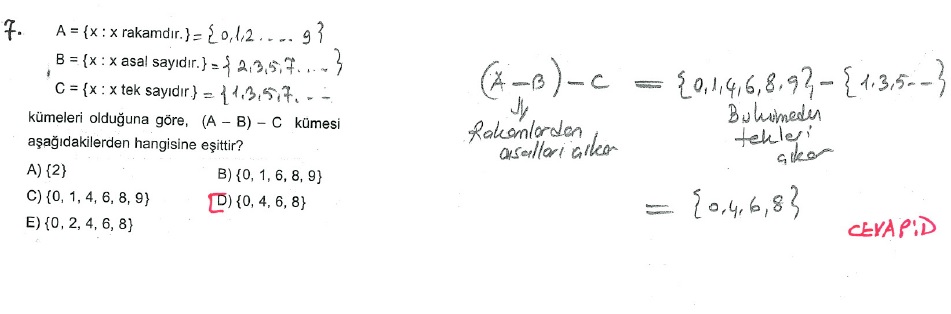 7. A = {x : x rakamdır.} = {0,1,2 ..... 9}
B = {x : x asal sayıdır.} = {2,3,5,7....}
C = {x : x tek sayıdır} = {1,3,5,7. ...
kümeleri olduğuna göre, (A – B) – C kümesi
aşağıdakilerden hangisine eşittir?
A) {2} B) {0, 1, 6, 8, 9}
C) {0, 1, 4, 6, 8, 9} D) {0, 4, 6, 8}
E) {0, 2, 4, 6, 8}
(A – B) – C = {0,1,4,6,8,9} – {1,3,5--}
Rakamlardan
asalları çıkar
Bu kümeden
tekleri
çıkar
= {0,4,6,8}
CEVAP:D